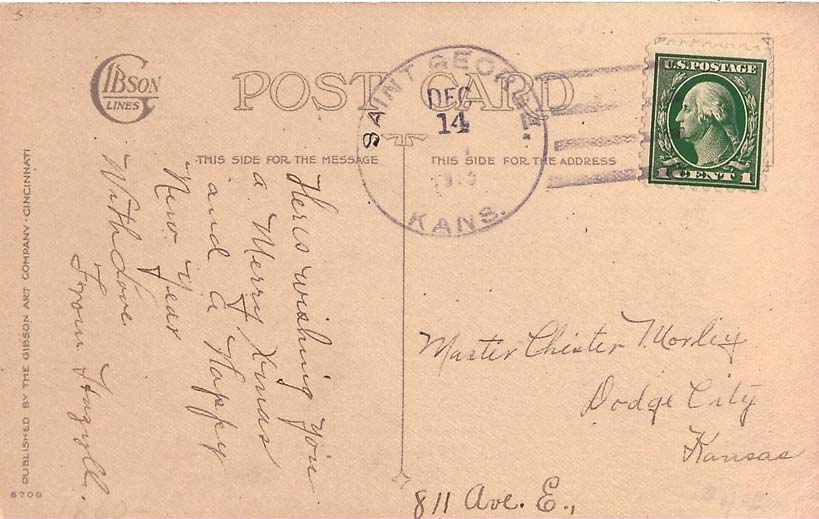 GIBSON
LINES
POST CARD
THIS SIDE FOR THE MESSAGE
THIS SIDE FOR THE ADDRESS
SAINT GEORGE
DEC
14
KANS.
U.S. POSTAGE
1 CENT 1
Heres wishing you
a Merry Xmas
and a Happy
New Year
With Love
From
Master Chester Morley
Dodge City
Kansas
811 Ave. E.,
PUBLISHED BY THE GIBSON ART COMPANY · CINCINNATI
6700